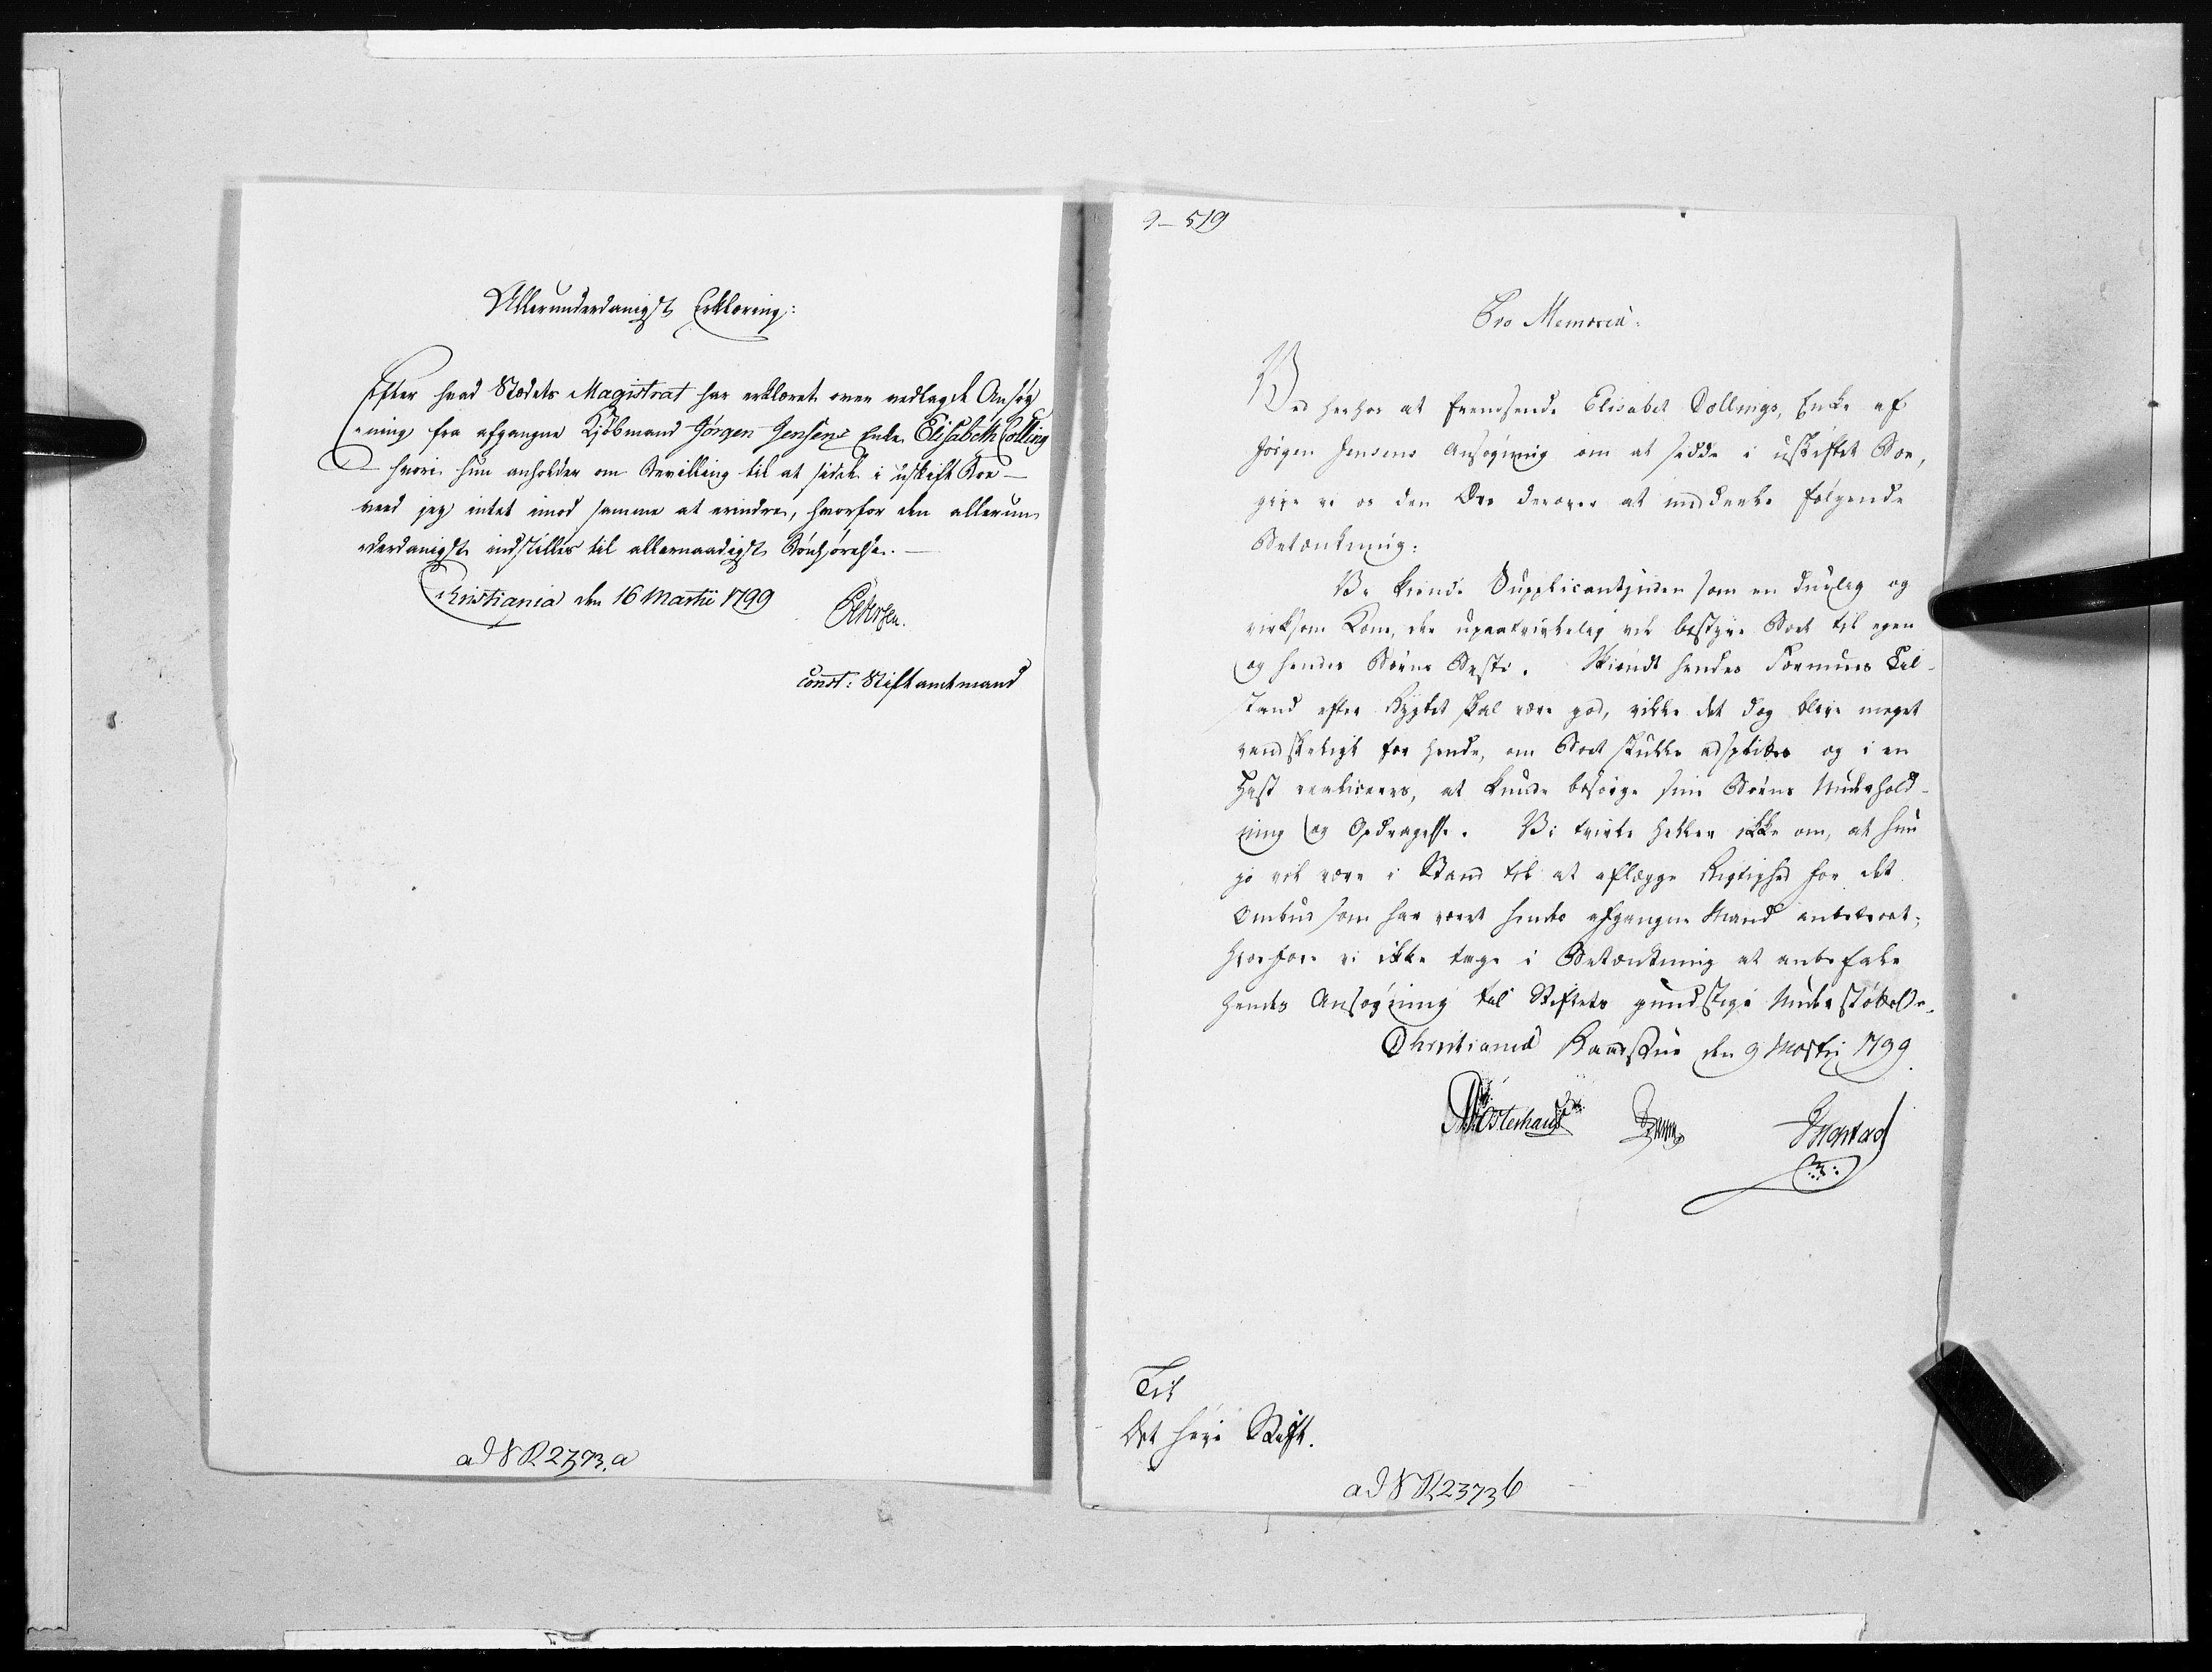 Allerunderdanigst Erklæring:
Efter hvad Stedets Magistrat har erklæret over vedlagde Ansøg
-ning fra afgangne Kjøbmand Jørgen Jensens Enke Elisabeth Colling
hvori hun anholder om Bevilling til at sidde i uskift Boe -
veed jeg intet imod samme at erindre, hvorfor den allerun
-derdanigst indstilles til allernaadigst Bønhørelse. -
Christiania den 16 Martii 1799
Petersen.
const: Stiftamtmand
ad N R 2373. a
9-519
Pro Memoria:
Ved herhos at fremsende Elisabet Collings, Enke af
Jørgen Jensens Ansøgning om at sidde i uskiftet Boe,
give vi os den Ære derover at meddeele følgende
Betænkning:
Vi kiende Supplicantinden som en duelig og
virksom Kone, der upaatvivlelig vil bestyre Boet til egen
og hendes Børns Beste. Skiøndt hendes Formues Til-
stand efter Rygtet skal være god, ville det dog blive meget
vanskeligt for hende, om Boet skulle adsplittes og i en
Hast realiseres, at kunde besørge sine Børns Underhold-
ning og Opdragelse. Vi tvivle heller ikke om, at hun
jo vil være i Stand til at aflægge Rigtighed for det
Ombud som har været hendes afgangne Mand anbetroet;
hvorfore vi ikke tage i Betænkning at anbefale
hendes Ansøgning til Stiftets gunstige Understøttelse.
Christiania Raadstue den 9 Martij 1799.
Til
Det høie Stift.
ad N R 2373 b